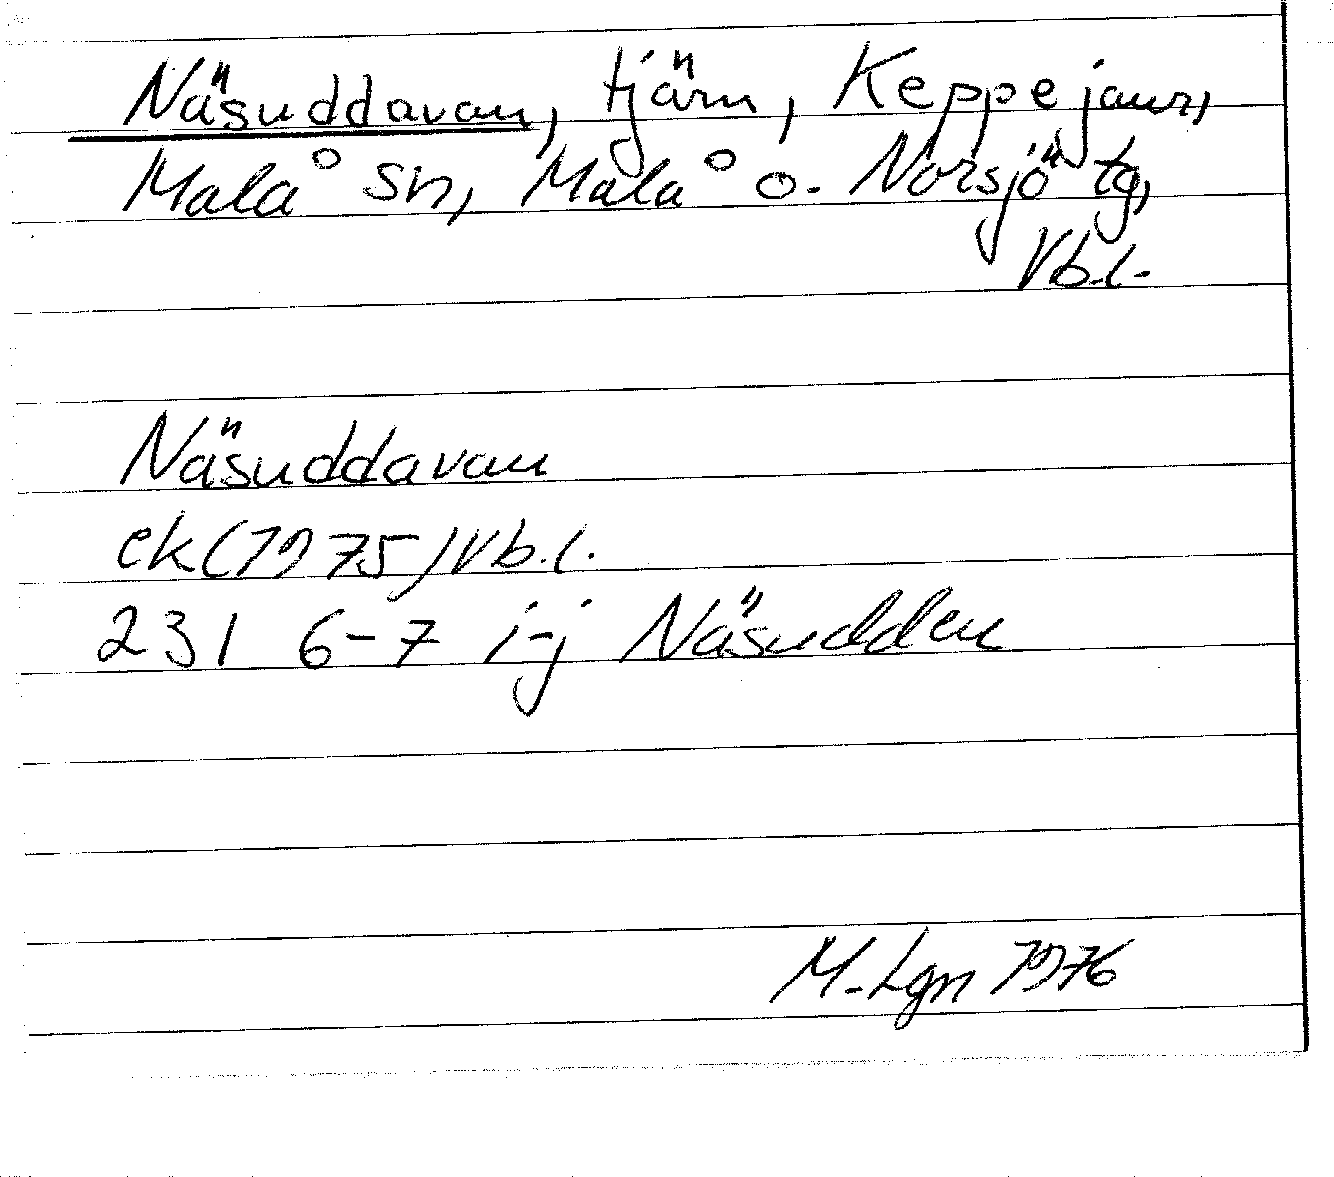 Näsuddavan, tjärn, Keppejaur,
Malå sn, Malå o. Norsjö tg,
Vb.l.
Näsuddavan
ek (1975) Vb.l.
231 6-7 i-j Näsudden
M-Lgn 1976